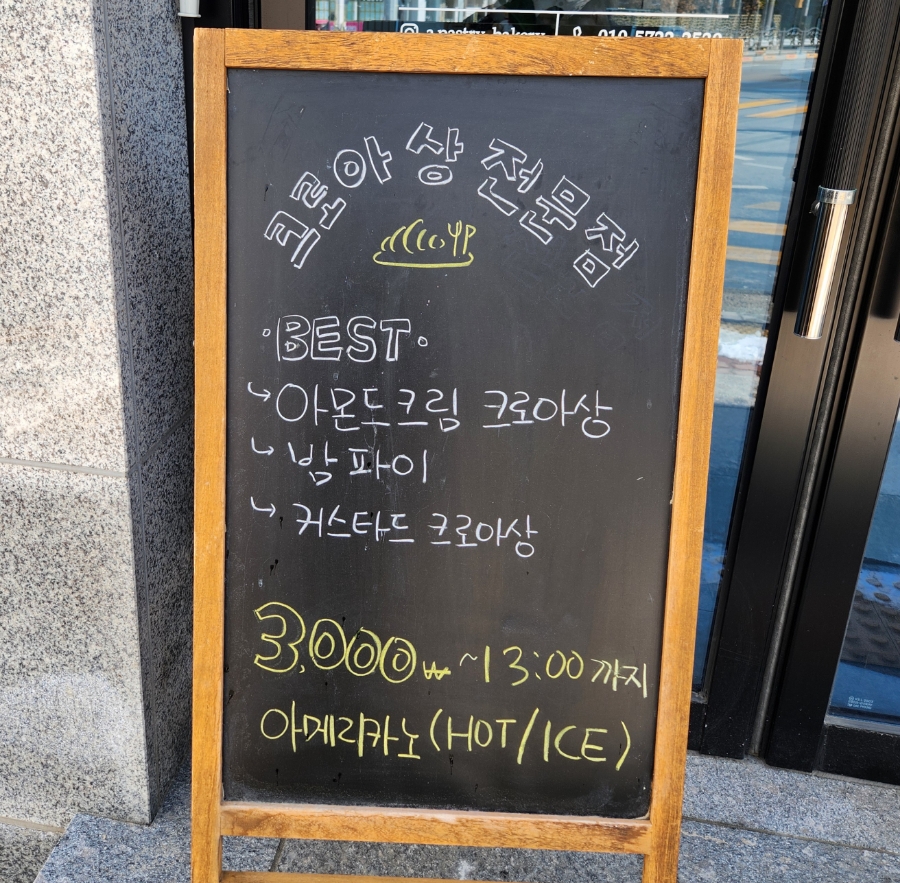 a.pastry_bakery
크로아상 전문점
·BEST·
아몬드크림 크로아상
밤 파이
커스타드 크로아상
3,000₩ ~13:00 까지
아메리카노 (HOT/ICE)